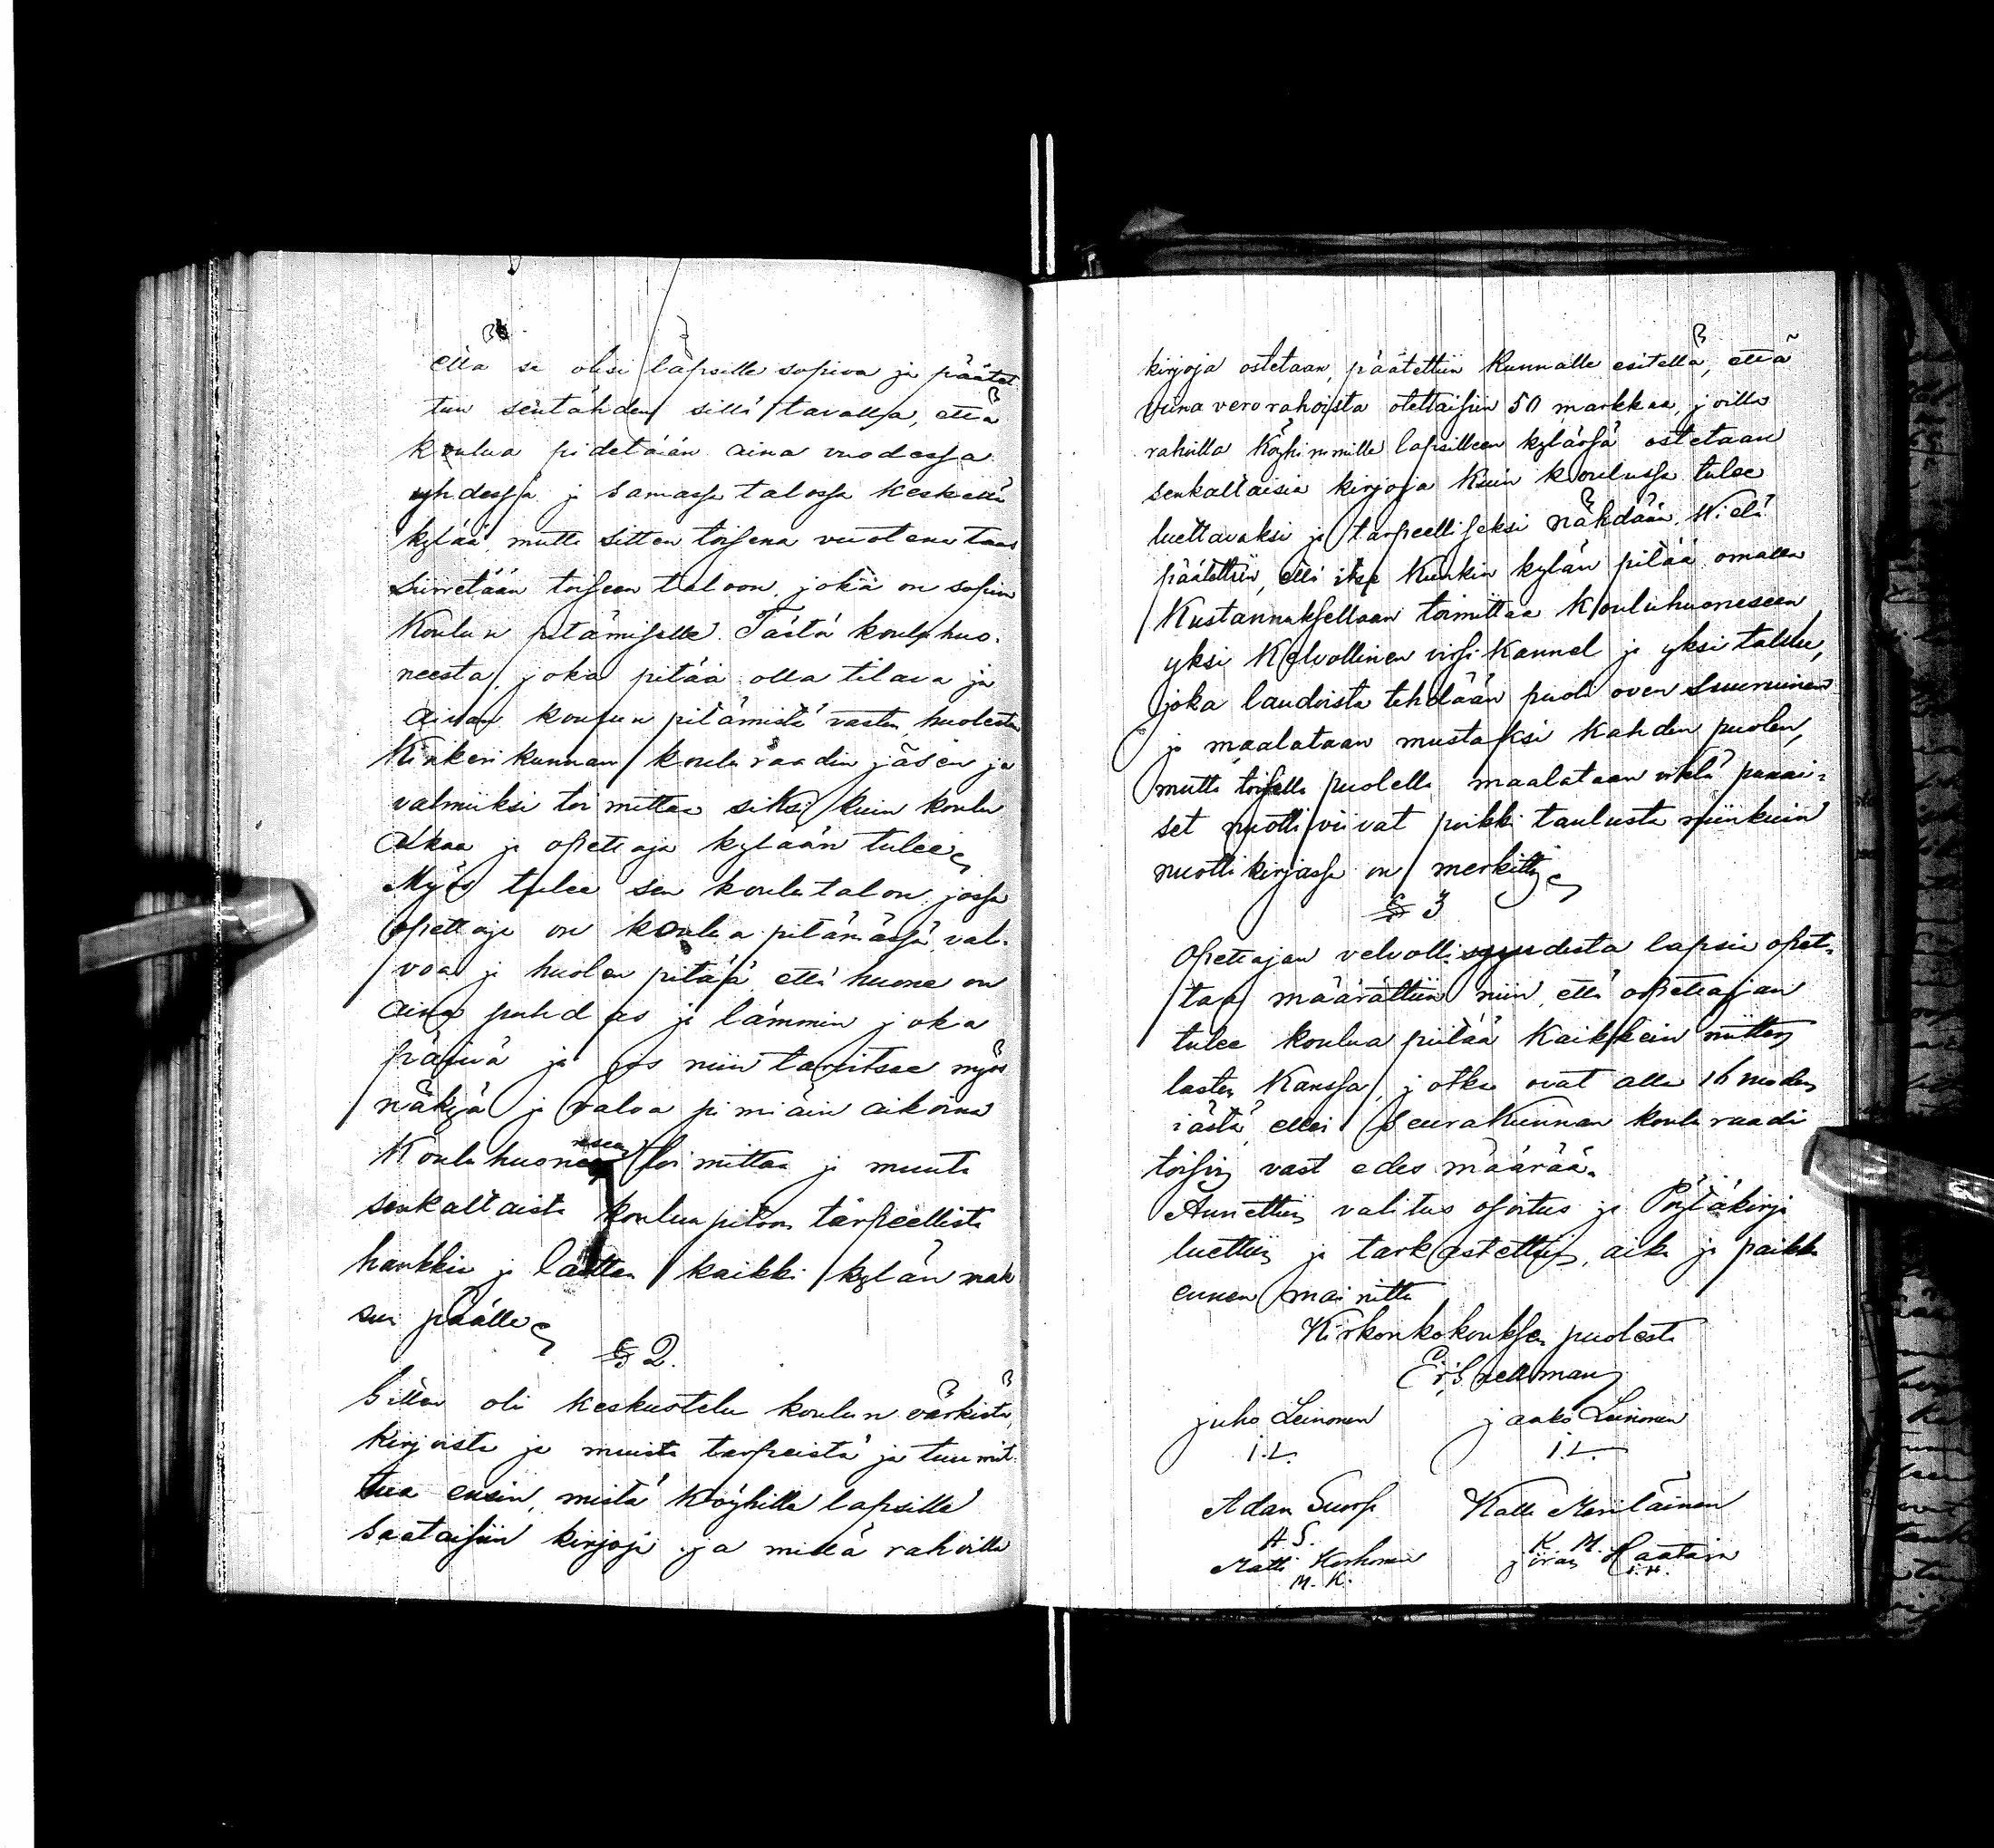 että se olisi lapsille sopiva ja päätet
tiin sentähden sillä tavalla, että
koulua pidetään aina vuodessa
yhdessä ja samassa talossa keskellä
kylää, mutta sitten toisena vuotena taas
siirretään toiseen taloon, joka on sopiva
Koulun pitämiselle. Tästä koulu huo-
neesta, joka pitää olla tilava ja
aivan koulun pitämistä vasta, huolestaa
Kinkerikunnan kouluraadin jäsen ja
valmiiksi toimittaa siksi kuin koulu
alkaa ja opettaja kylään tulee
Myös tulee sen koulutalon, jossa
opettaja on koulua pitämässä val-
voa ja huolen pitää että huone on
aina puhdas ja lämmin joka
päivä ja jos niin tarvitsee myös
näkyä ja valoa pimiäin aikoina
Kouluhuoneseen toimittaa ja muuta
senkaltaista koulun pitoon tarpeellista
hankkia ja laittaa kaikki kylän mak
sun päälle
§ 2.
Sitten oli keskustelu koulun värkistä,
kirjoista ja muista tarpeista ja tuumit-
tua ensin, mistä Köyhille lapsille
saataisiin kirjoja ja millä rahoilla
kirjoja ostetaan, päätettiin Kunnalle esitellä, että
viina verorahoista otettaisiin 50 markkaa, joilla
rahoilla Köyhimmille lapsilleen kylässä ostetaan
senkaltaisia kirjoja Kuin koulussa tulee
luettavaksi ja tarpeelliseksi nähdään. Wielä
päätettiin, että itse Kunkin kylän pitää omalla
Kustannuksellaan toimittaa Kouluhuoneseen
yksi Kelvollinen virsi Kannel ja yksi taulu,
joka laudoista tehdään puoli oven suuruinen
ja maalataan mustaksi Kahden puolen,
mutta toisella puolella maalataan viktä punai-
set nuotti viivat poikki taulusta niinkuin
nuottikirjassa on merkitty
§ 3
Opettajan velvollisuudesta lapsia opet-
taa määrättiin niin, että opettajan
tulee koulua pitää Kaikkein niitten
lasten Kanssa, jotka ovat alla 16 vuoden
iästä, ellei Seurakunnan kouluraadi
toisin vast edes määrää.
Annettiin valitus osoitus ja Pöytäkirja
luettiin ja tarkastettiin, aika ja paikka
ennen mainittu
Kirkonkokouksen puolesta
Snellman
juho Leinonen jaako Leinonen
i. L. i. L.
Adam Kalle Meriläinen
A. S. K. M.
Matti Korhonen jöran Haatain
M. K. i. H.